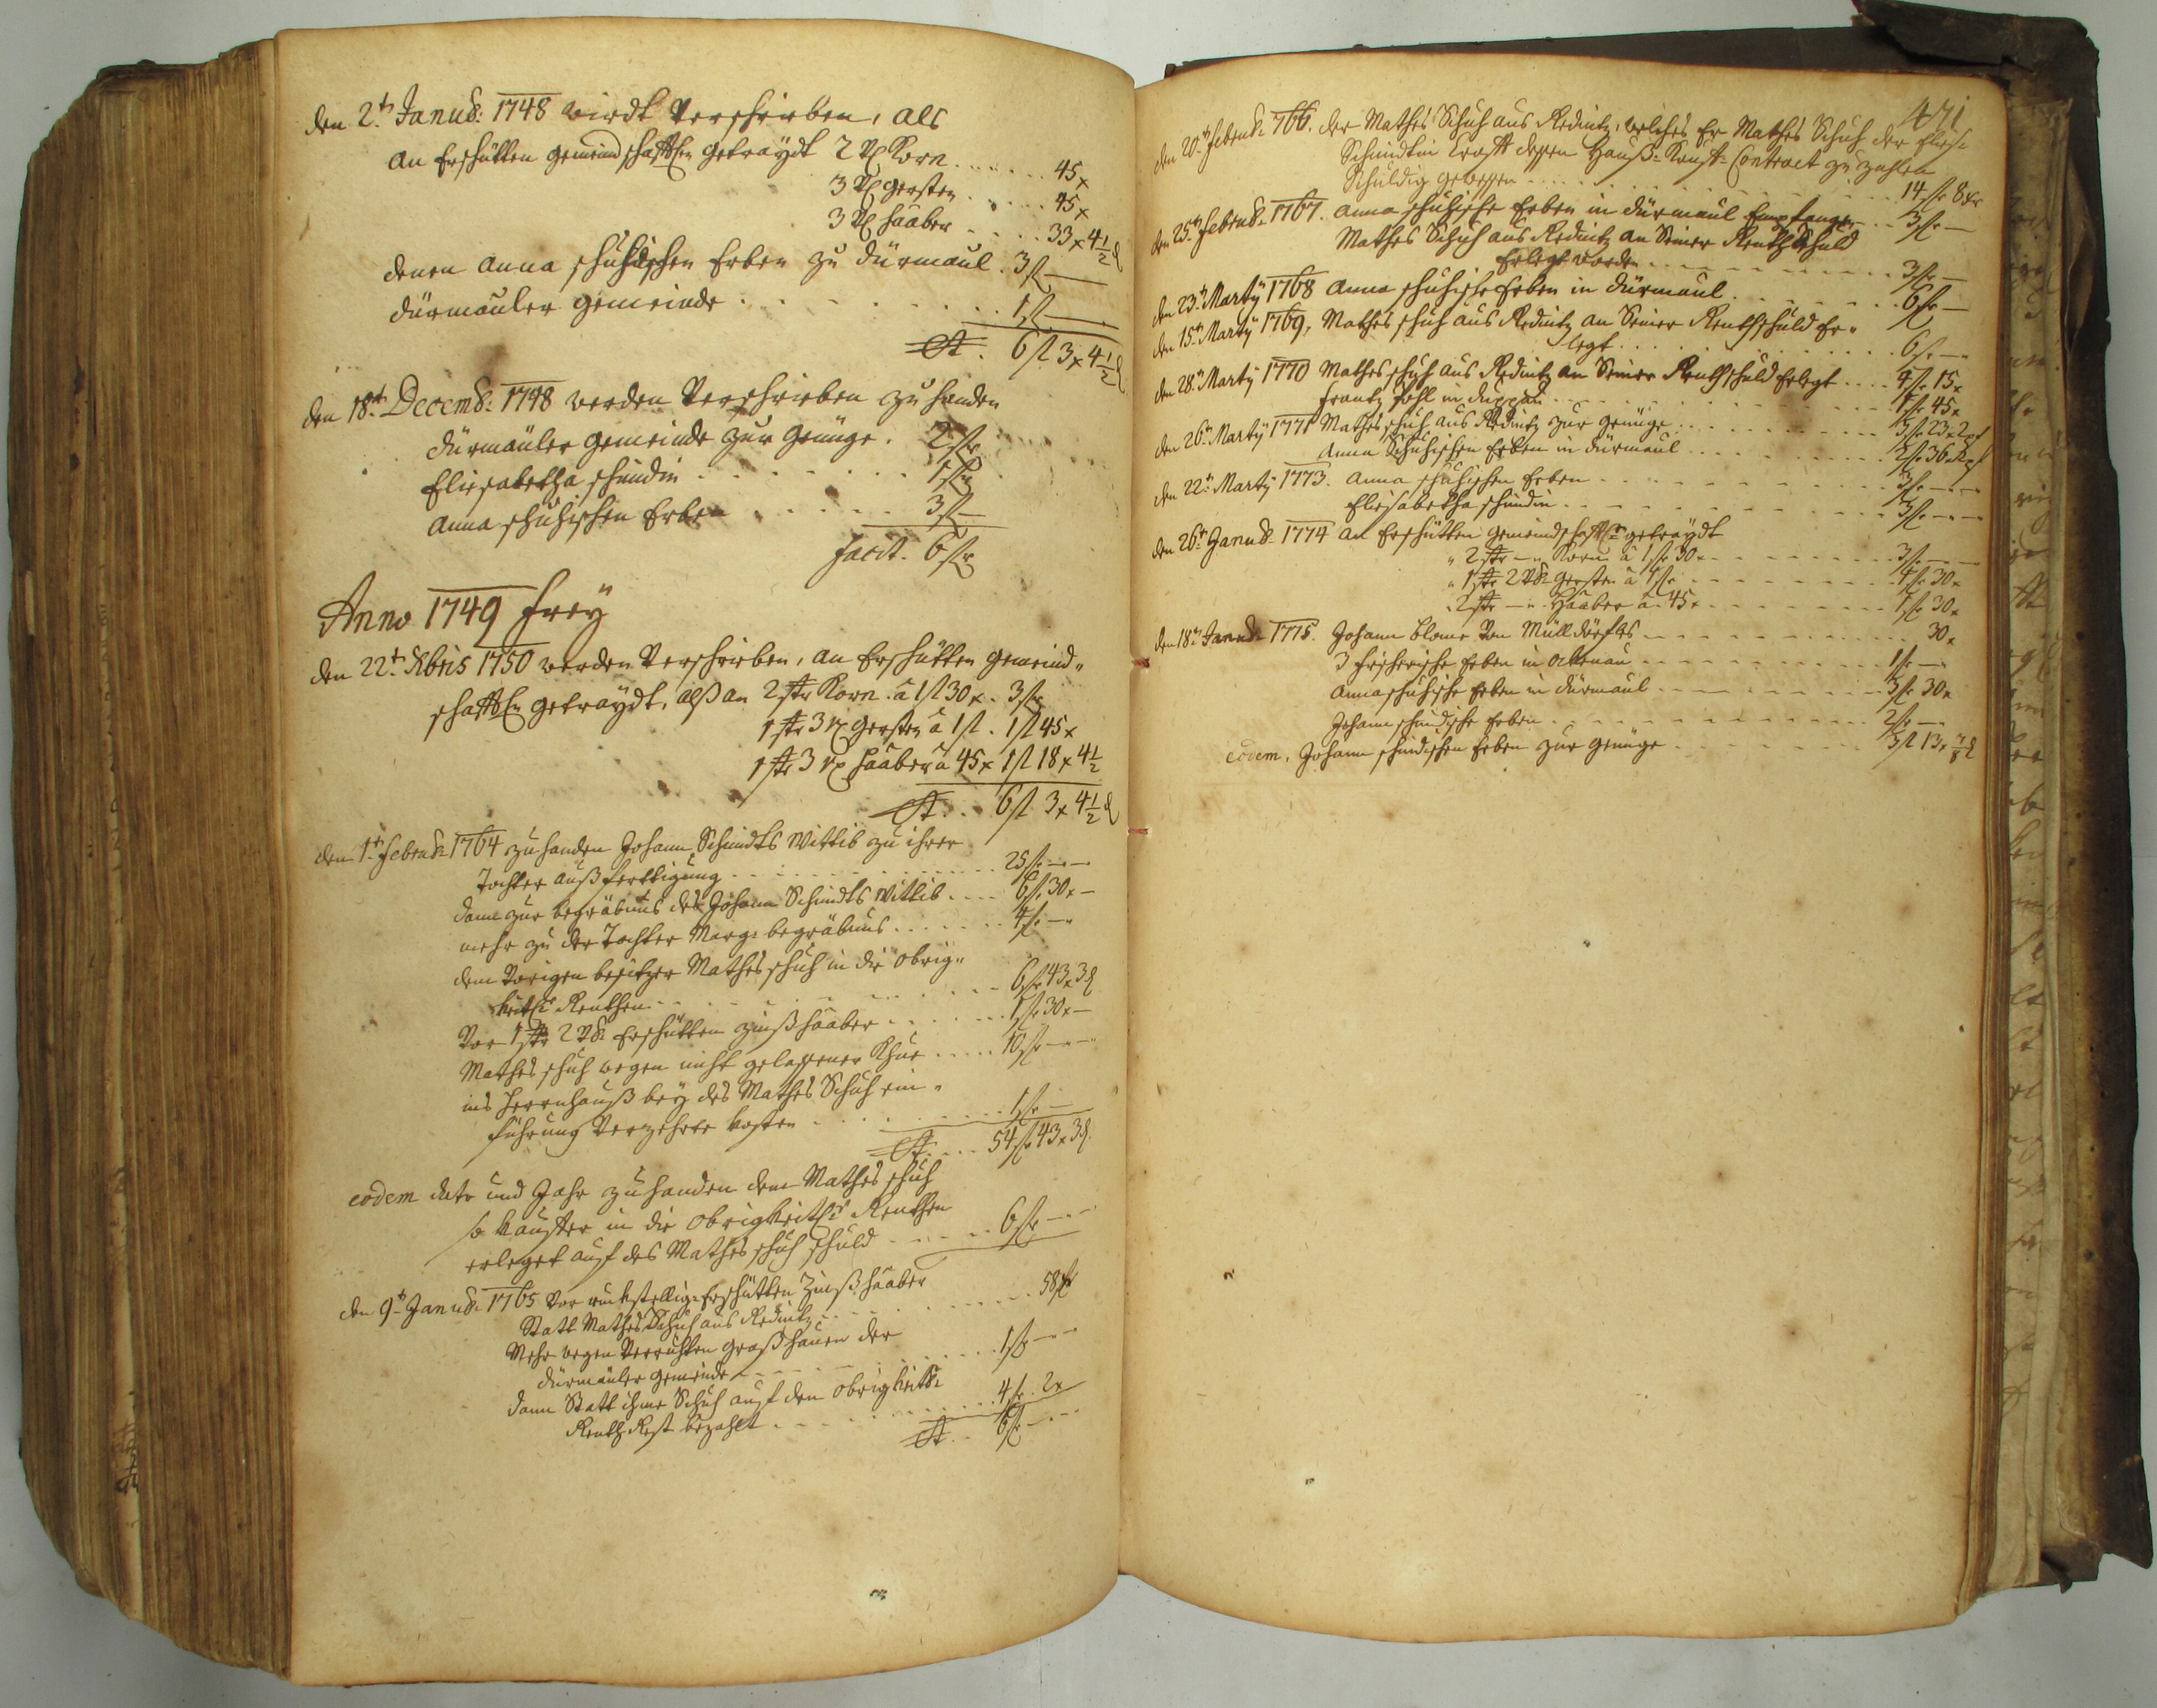 den 2t. Janu&: 1748 wirdt verschrieben, als
an Erschütten gemeindschafftln getraydt 2 Vl Korn . . . . . . 45 x
3 Vl gersten . . . . . . 45 x
3 Vl haaber . . . . 33 x 4 1/2 d
denen anna schuhischen Erben zu dürmaul . 3 fl —
dürmauler gemeinde . . . . . . . . 1 fl —
St. 6 fl 3 x 4 1/2 d
den 18t. Decemb: 1748 werden verschrieben zu handen
dürmäuler gemeinde zur genüge . 2 fl
Eliesabetha schmidin . . . . . . . 1 fl
anna schuhischen Erben . . . . . 3 fl —
facit. 6 fl
Anno 1749 frey
den 22t. Xbris 1750 werden verschrieben, an Erschütten gemeind„
schafftln getraydt, alß an 2 str Korn . â 1 fl 30 x . 3 fl
1 str 3 vl gersten â 1 fl . 1 fl 45 x
1 str 3 vl haaber â 45 x 1 fl 18 x 4 1/2
St . . 6 fl 3 x 4 1/2 d
den 1t. Febru: 1764 zu handen Johann Schmidts Wittib zu ihrer
Tochter außferttigung . . . . . . . . . . 25 fl. — —
dann zur begräbnus des Johann Schmidts Wittib . . . . 6 fl. 30 x —
mehr zu der Tochter Marg: begräbnus . . . . . . . 4 fl. — „
dem vorigen besitzer Mathes schuh in die obrig„
keitl: Renthen . . . . . . . . . 6 fl 43 x 3 d
Vor 1 str 2 V& Erschütten zinß haaber . . . . . . 1 fl. 30 x —
Mathes schuh wegen nicht gelassener Khue . . . . . 10 fl. — —
ins Herrnhauß bey des Mathes Schuh ein„
führung verzehrte kosten . . . . . . . . 1 fl. —
St. . . . 54 fl. 43 x 3 d.
eodem dato und Jahr zu handen dem Mathes schuh
so käuffer in die obrigkeitl: Renthen
erleget auf des Mathes schuh schuld . . . . . 6 fl. — —
den 9t. Janu&: 1765 Vor rückstellige Erschütten Zinß haaber
Statt Mathes Schuh aus Redwitz . . . . . . . . 58 x
Mehr wegen graßhauen der
dürmäuler gemeinde . . . . . . . . 1 fl — —
dann Statt ihme Schuh auf den obrigkeitl:
Renth Rest bezahlt . . . . . . . . 4 fl. 2 x
St . . 6 fl. — —
471
den 20t. Febru&: 766. der Mathes Schuh aus Redwitz, welches Er Mathes Schuh der Elies:
Schmidtin Krafft dessen Hauß=Kauff=Contract zu zahlen
Schuldig gewessen . . . . . . . . . . . . 14 fl. 8 x
den 25t. Febru&: 1767. anna schuhische Erben in dürmaul Empfangen . . 3 fl. —
Mathes Schuh aus Redwitz an Seiner Renth Schuld
Erlegt worden . . . . . . . . . . . 3 fl. —
den 23t. Marty 1768 anna schuhische Erben in dürmaul . . . . . . . . 6 fl. —
den 15t. Marty 1769, Mathes schuh aus Redwitz an Seiner Renthschuld Er„
legt . . . . . . . . . . . . . 6 fl. — „
den 28t. Marty 1770 Mathes schuh aus Redwitz an Seiner Renthschuld Erlegt . . . . 4 fl. 15 x
Frantz in duppau . . . . . . . . . . 1 fl. 45 x
den 26t. Marty 1771 Mathes schuh aus Redwitz zur genüge . . . . . . . . . 3 fl. 23 x 2 pf
Anna Schuhischen Erben in dürmaul . . . . . . . . . 2 fl. 36 x
den 22t. Marty 1773. anna schuhischen Erben . . . . . . . . . . 3 fl. — —
Eliesabetha schmidin . . . . . . . . . . 3 fl. — —
den 26t. Janu&: 1774 an Erschütten gemeindschafftl: getraydt
„ 2 str — „ Korn â 1 fl. 30 x . . . . . . . . 3 fl. — —
„ 1 str 2 V& gersten â 1 fl. . . . . . . . . 1 fl. 30 x
„ 2 str — „ Haaber â . 45 x . . . . . . . . 1 fl. 30 x
den 18t. Janu&: 1775. Johann Blome von Mülldörffls . . . . . . . . . . 30 x
J fischerische Erben in Ottenau . . . . . . . . . 1 fl. —
anna schuhische Erben in dürmaul . . . . . . . . . 3 fl. 30 x
Johann schmidische Erben . . . . . . . . . . . 2 fl. —
eodem, Johann schmidischen Erben zur genüge . . . . . . . . . 3 fl 13 x